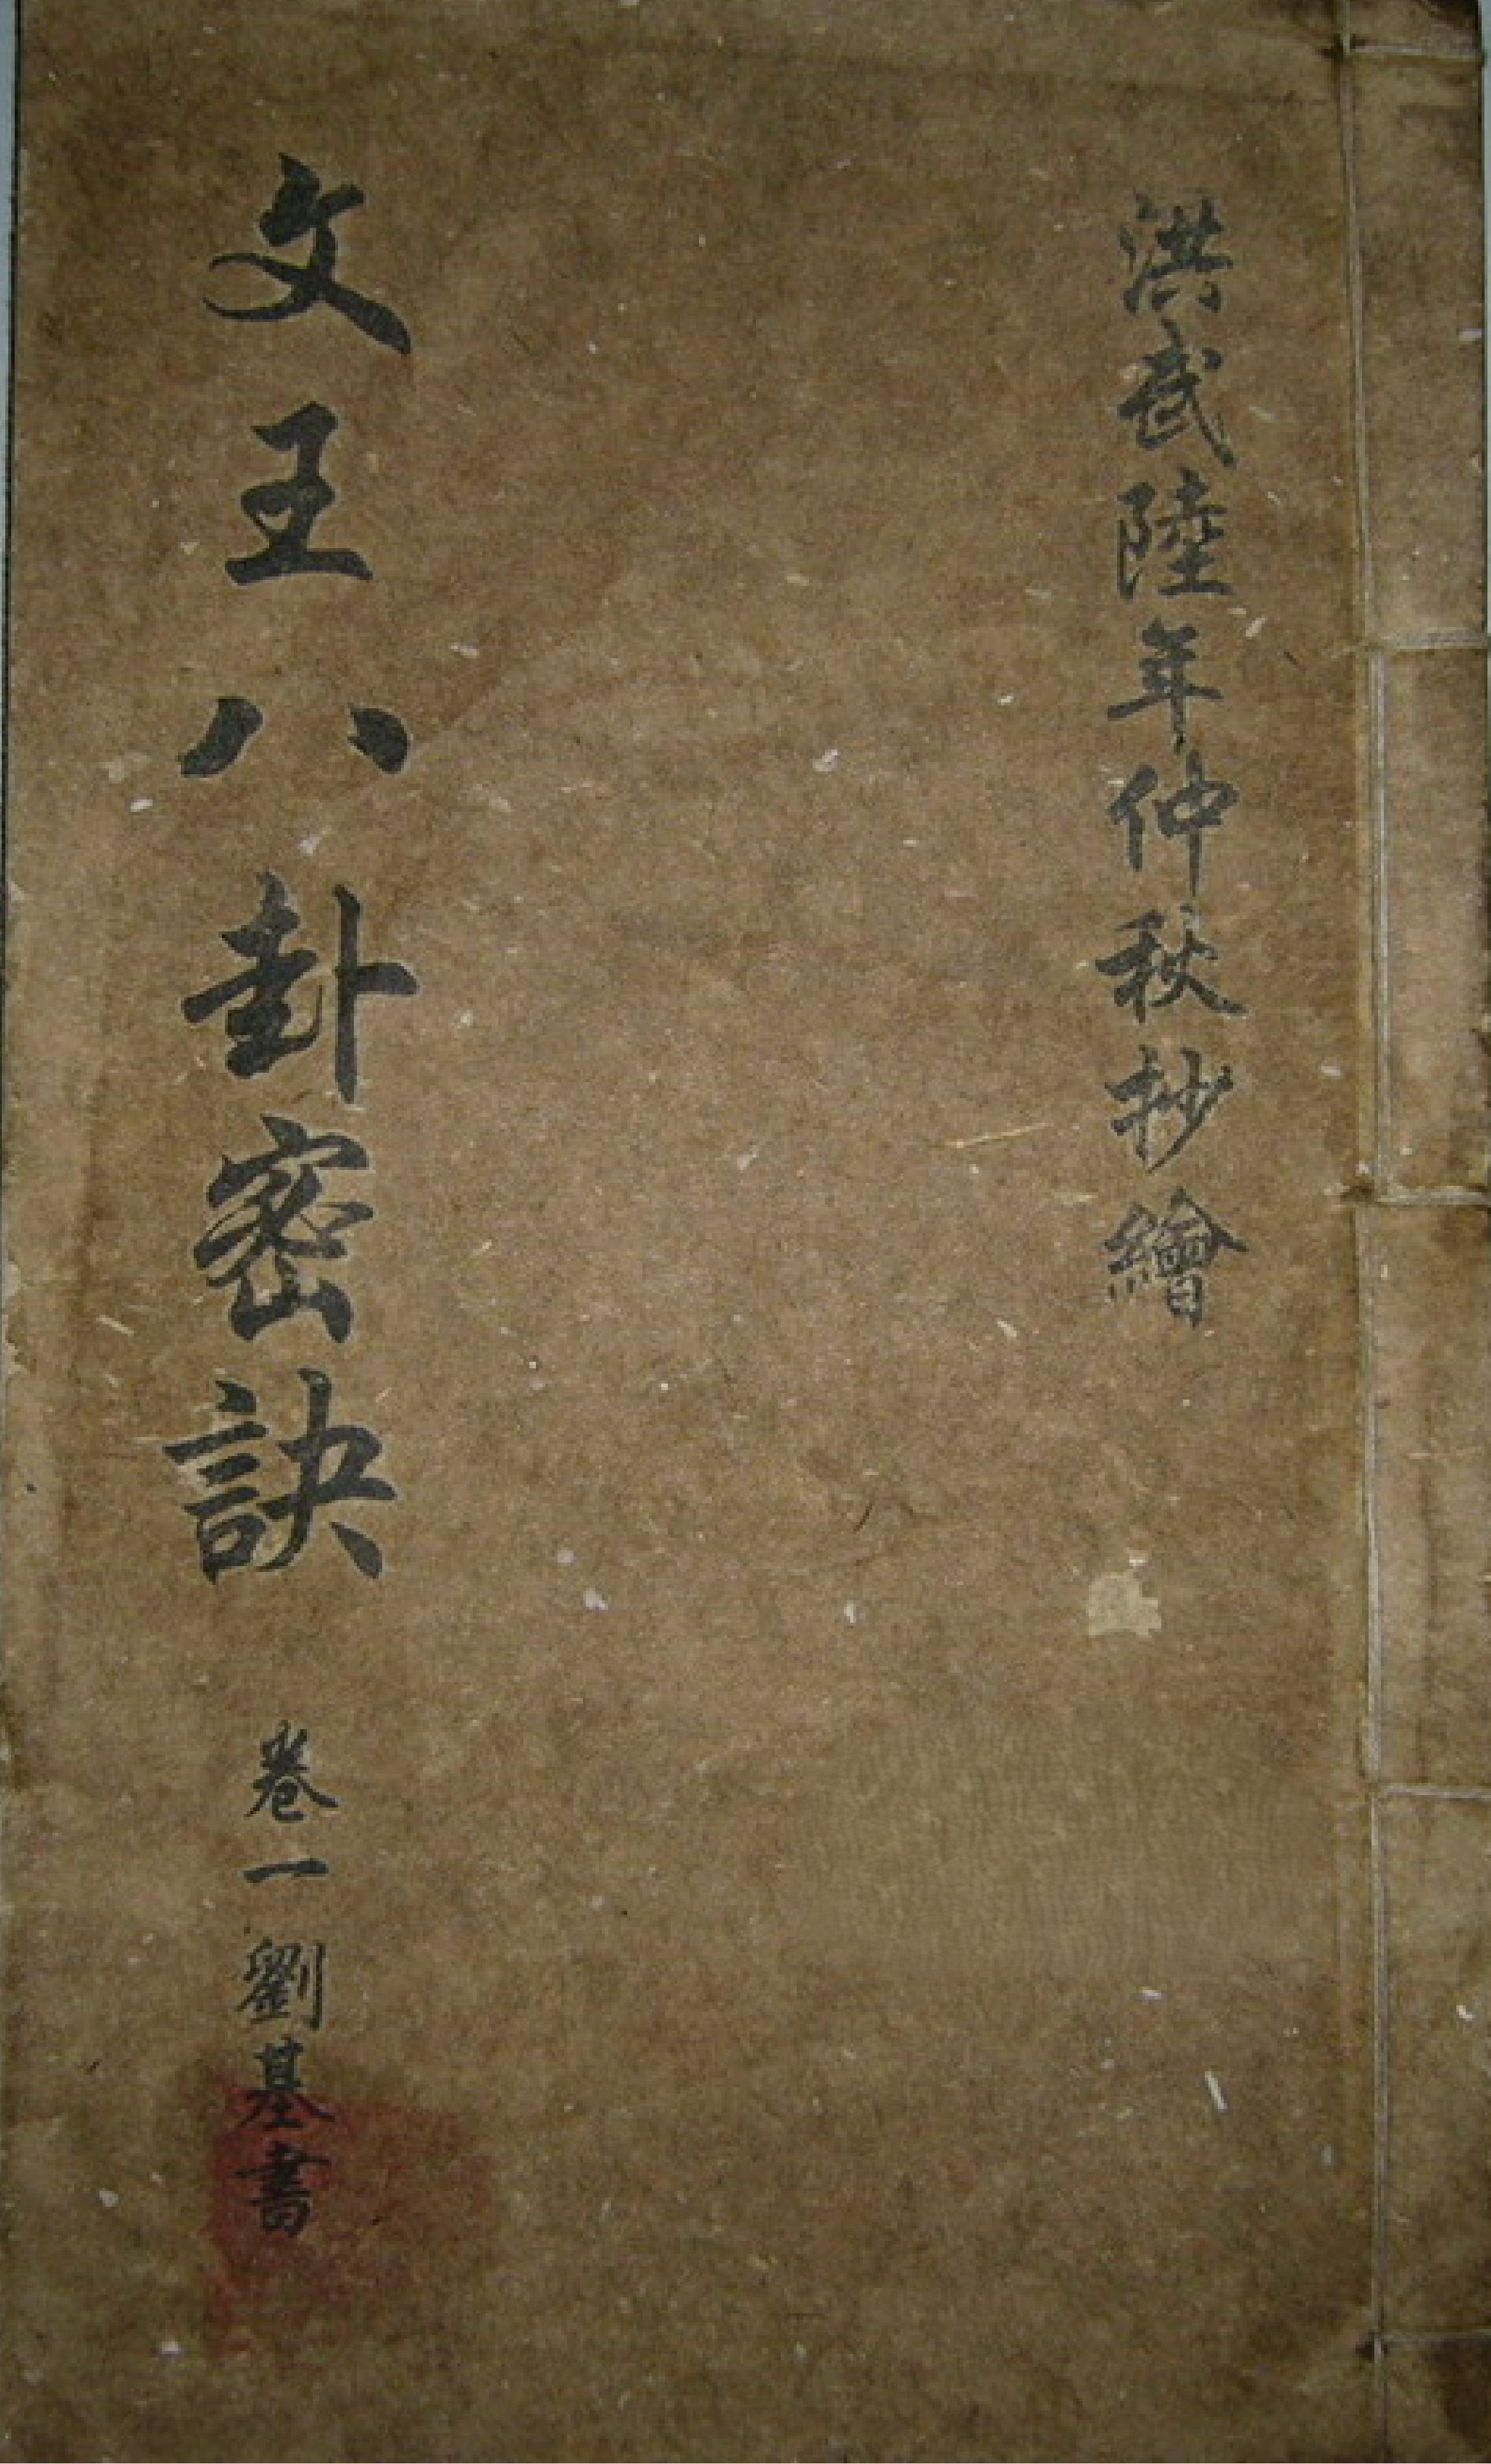 洪武陸年仲秋抄繪
文王八卦密訣 卷一 劉基書